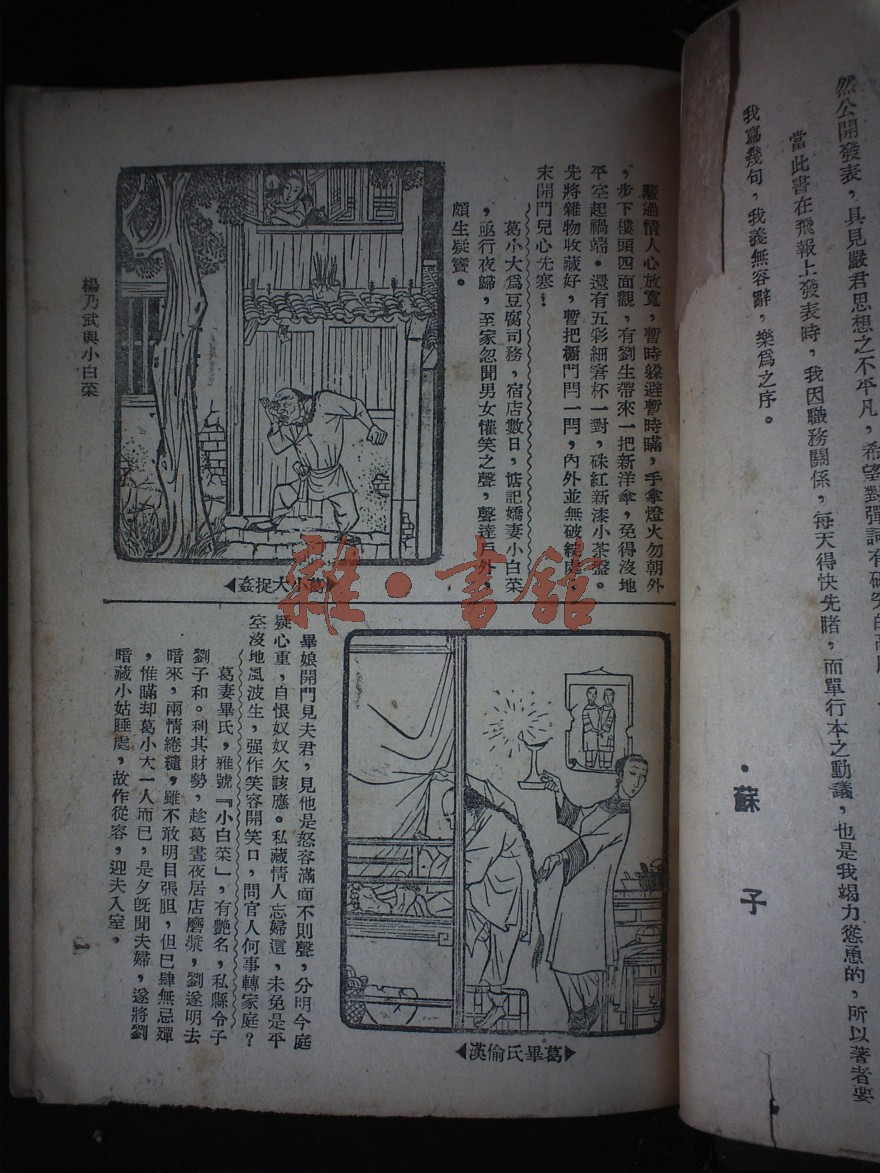 然公開發表，具見嚴君思想之不平凡，希望對彈詞有研究的
當此書在飛報上發表時，我因職務關係，每天得快先睹，而單行本之動議，也是我竭力慫恿的，所以著者要
我寫幾句，我義無容辭，樂爲之序。
・蘇子
驗過情人心放寬，暫時躱避暫時瞞，手拿燈火勿朝外
，步下樓頭四面觀，有劉生帶來一把新洋傘，免得沒地
平空起禍端。還有五彩細窰杯一對，硃紅新漆小茶盤。
先將雜物收藏好，暫把櫥門閂一閂，內外並無破綻處，
未開門兒心先寒！
葛小大爲豆腐司務，宿店數日，惦記嬌妻小白菜
，亟行夜歸，至家忽聞男女懽笑之聲，聲達戶外，
頗生疑竇。
◀葛小大捉姦▶
楊乃武與小白菜
◀葛畢氏偷漢▶
畢娘開門見夫君，見他是怒容滿面不則聲，分明今庭
疑心重，自恨奴奴欠該應。私藏情人忘婦道，未免是平
空沒地風波生，强作笑容開笑口，問官人何事轉家庭？
葛妻畢氏，雅號『小白菜』，有艷名，私縣令子
劉子和。利其財勢，趁葛晝夜居店磨漿，劉遂明去
暗來，兩情綣繾，雖不敢明目張胆，但已肆無忌殫
，惟瞞却葛小大一人而已，是夕旣聞夫歸，遂將劉
暗藏小姑睡處，故作從容，迎夫入室。
一
雜・書館